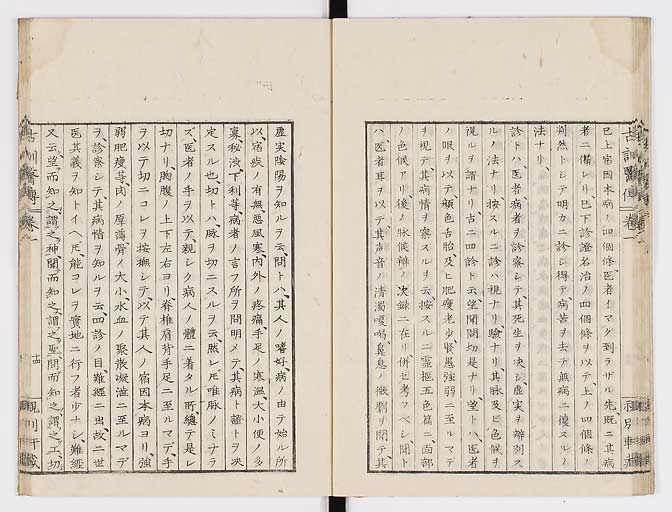 已上宿因本病ノ四個條、医者イマダ到ラザル先、既ニ其病
者ニ備レリ、已下診證名治ノ四個條ヲ以テ、上ノ四個條ノ
判然トシテ明カニ診シ得テ、病苦ヲ去テ無病ニ復スルノ
法ナリ、
診トハ、医者病者ヲ診察シテ、其死生ヲ决シ、虚実ヲ辨別ス
ルノ法ナリ、按スルニ診ハ視ナリ、驗ナリ、其脉及ヒ色候ヲ
視ルヲ謂ナリ、古ニ四診ト云、望聞問切是ナリ、望トハ、医者
ノ眼ヲ以テ、顔色舌胎及ヒ肥瘦老少賢愚強弱ニ至ルマデ
ヲ視テ、其病情ヲ察スルヲ云、按スルニ霊樞五色篇ニ、面部
ノ色候アリ、後ノ脉候辨ノ次録ニ在リ、併セ考フベシ、聞ト
ハ、医者耳ヲ以テ、其声音ノ清濁嗄喝鼻息ノ微劇ヲ聞テ、其
虚実陰陽ヲ知ルヲ云、問トハ、其人ノ嗜好、病ノ由テ始ル所
以、宿疾ノ有無、悪風寒、内外ノ疼痛、手足ノ寒温、大小便ノ多
寡、秘泄下利等、病者ノ言フ所ヲ問明メテ、其病ト證トヲ决
定スル也、切トハ、脉ヲ切ニスルヲ云、然レ𪜈唯脉ノミナラ
ズ、医者ノ手ヲ以テ、親シク病人ノ體ニ着タル所、總テ是レ
切ナリ、胸腹ノ上下左右ヨリ、脊椎肩背手足ニ至ルマデ、手
ヲ以テ切ニコレヲ按撫シテ、以テ其人ノ宿因本病ヨリ、強
弱肥瘦等、肉ノ厚薄、骨ノ大小、水血ノ聚散凝滯ニ至ルマデ
ヲ、診察シテ其病情ヲ知ルヲ云、四診ノ目、難經ニ出、故ニ世
医其義ヲ知トイヘ𪜈、能コレヲ實地ニ行フ者少ナシ、難經
又云、望而知之、謂之神、聞而知之、謂之聖、問而知之、謂之工、切
古訓醫傳 巻一
十四